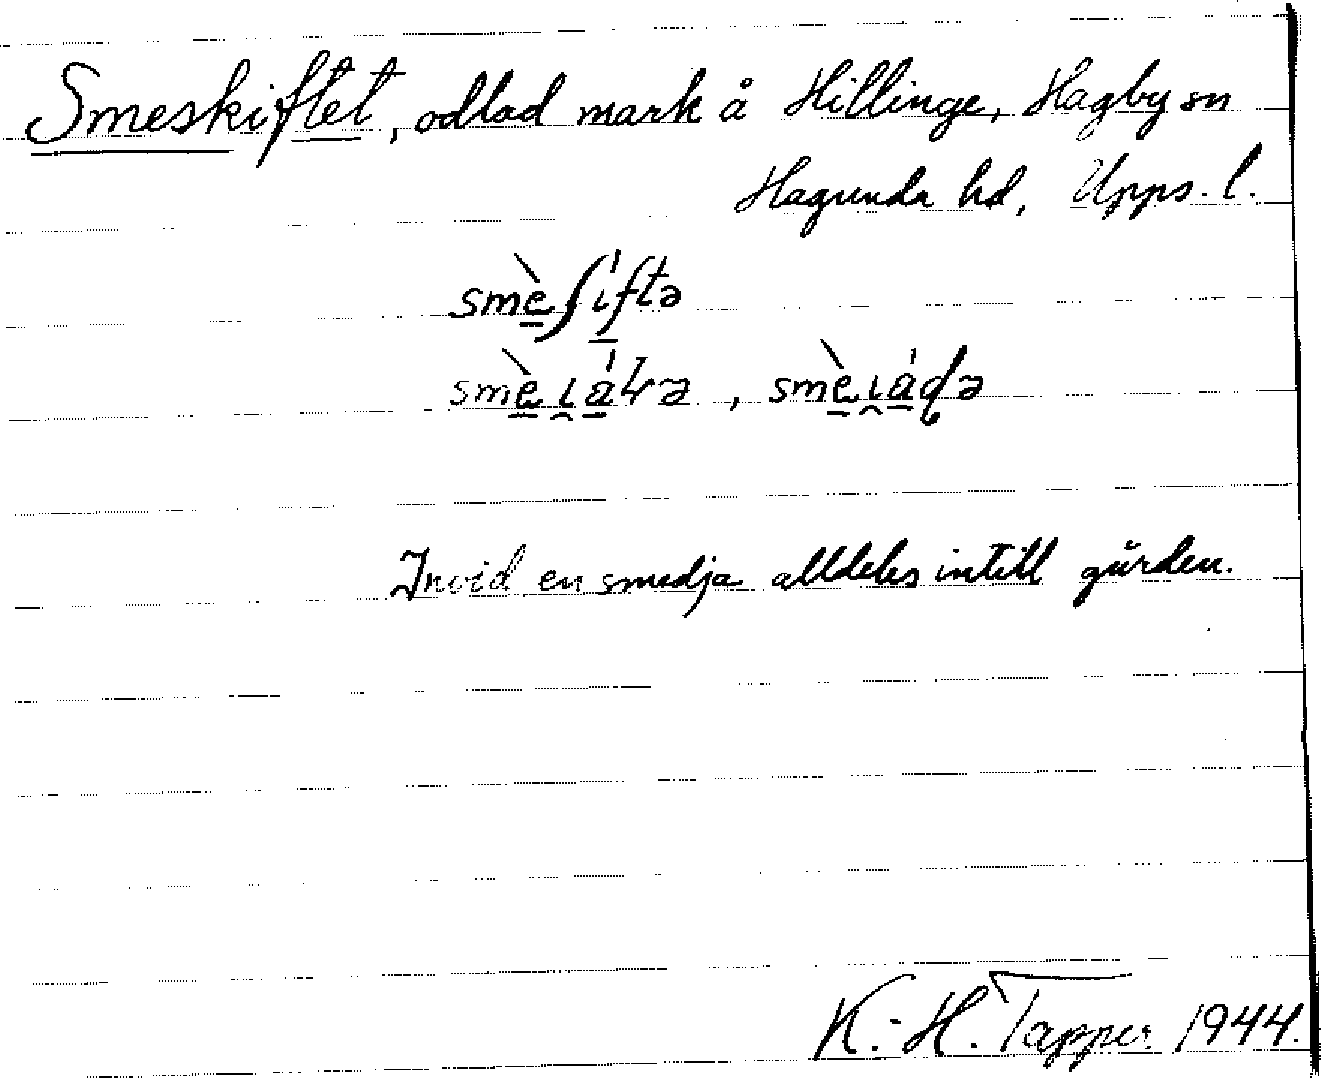 Smeskiftet, odlad mark å Hillinge, Hagby sn
Hagunda hd, Upps. l.
smè̱ʃı̱́ftə
Invid en smedja alldeles intill gården.
K.-H. Tapper 1944.